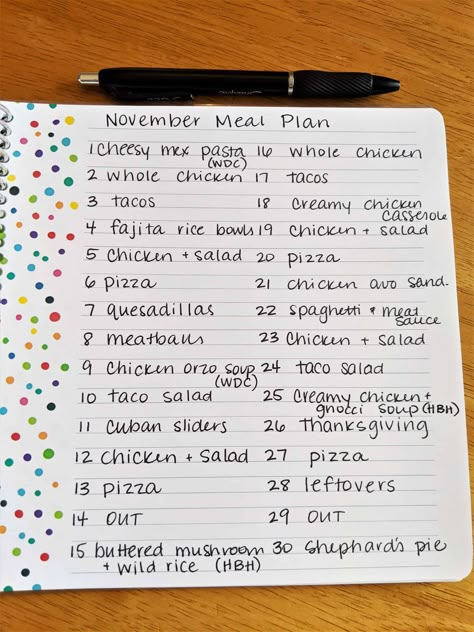 November Meal Plan
1 cheesy mex pasta (WDC)
2 whole chicken
3 tacos
4 fajita rice bowls
5 chicken + salad
6 pizza
7 quesadillas
8 meatballs
9 chicken orzo soup (WDC)
10 taco salad
11 cuban sliders
12 chicken + salad
13 pizza
14 OUT
15 buttered mushroom
+ wild rice (HBH)
16 whole chicken
17 tacos
18 creamy chicken
casserole
19 chicken + salad
20 pizza
21 chicken avo sand.
22 spaghetti + meat
sauce
23 chicken + salad
24 taco salad
25 creamy chicken +
gnocci soup (HBH)
26 thanksgiving
27 pizza
28 leftovers
29 OUT
30 shephard's pie